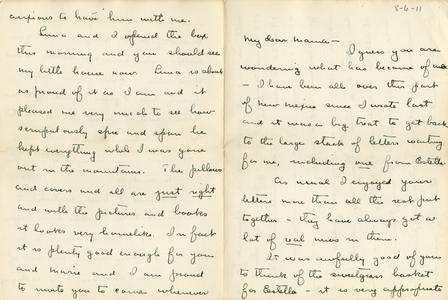 8-6-11
My dear Mama—
I guess you are
wondering what has become of me
— I have been all over this part
of New Mexico since I wrote last
and it was a big treat to get back
to the large stack of letters waiting
for me, including one from Estella.
As usual I enjoyed your
letters more than all the rest put
together — they have always got a
lot of real news in them.
It was awfully good of you
to think of the sweetgrass basket
for Estella — it is very appropriate
anxious to have him with me.
and I opened the box
this morning and you should see
my little house now. is about
as proud of it as I am and it
pleased me very much to see how
scrupulously spic and span he
kept everything while I was gone
out in the mountains. The pillows
and covers and all are just right
and with the pictures and books
it looks very homelike. In fact
it is plenty good enough for you
and Marie and I am proud
to invite you to come whenever